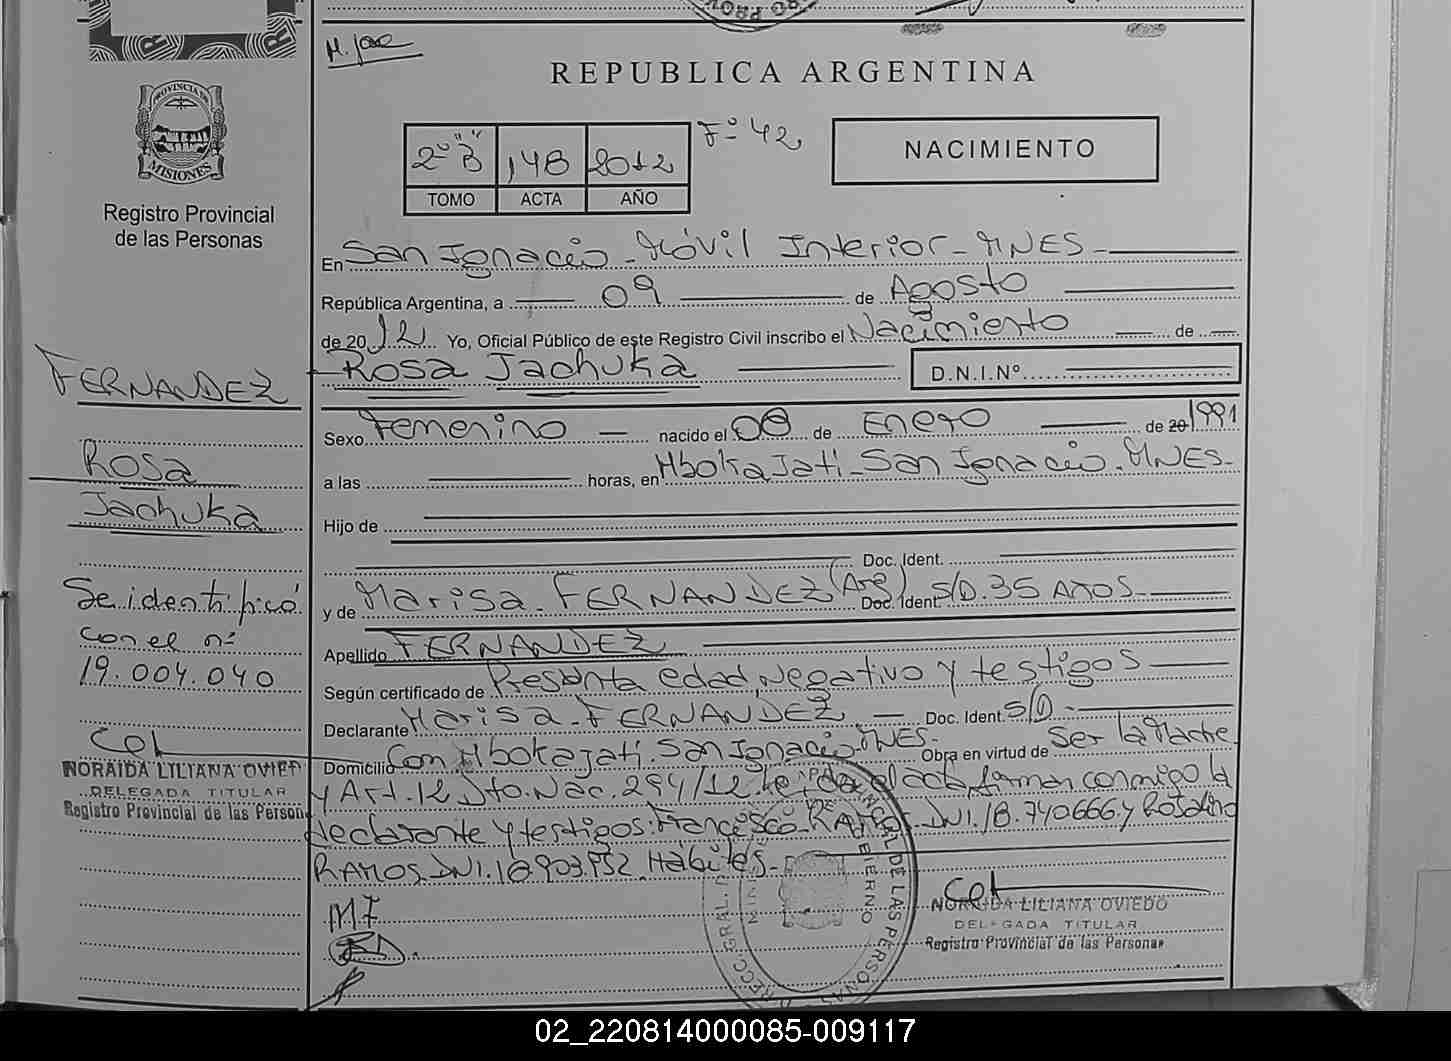 M. Jose
REPUBLICA ARGENTINA
PROVINCIA DE
MISIONES
Registro Provincial
de las Personas
2º "B" 148 2012 Fº 42
TOMO ACTA AÑO
NACIMIENTO
En San Ignacio - Móvil Interior - MNES -
República Argentina, a 09 de Agosto
de 2012 Yo, Oficial Público de este Registro Civil inscribo el Nacimiento de
Rosa Jachuka D.N.I.Nº
Sexo Femenino nacido el 08 de Enero de 20 1991
a las horas, en Mboka Jati - San Ignacio - MNES -
Hijo de
Doc. Ident.
y de Marisa - FERNANDEZ (Arg) Doc. Ident. S/D. 35 AÑOS -
Apellido FERNANDEZ
Según certificado de Presunta edad, Negativo y testigos
Declarante Marisa - FERNANDEZ Doc. Ident. S/D -
Domicilio Con Mbokajati. San Ignacio - MNES - Obra en virtud de Ser la Madre
y Art. 12 Dto. Nac. 294/12 leída el acta firman conmigo la
declarante y testigos: Francisco RAMOS - DNI. 18.740666 y Rosalino
RAMOS DNI. 18.903.952 Hábiles -
M F
NORAIDA LILIANA OVIEDO
DELEGADA TITULAR
Registro Provincial de las Personas
FERNANDEZ
Rosa
Jachuka
Se identificó
con el nº
19.004.040
NORAIDA LILIANA OVIED
DELEGADA TITULAR
Registro Provincial de las Person
02_220814000085-009117